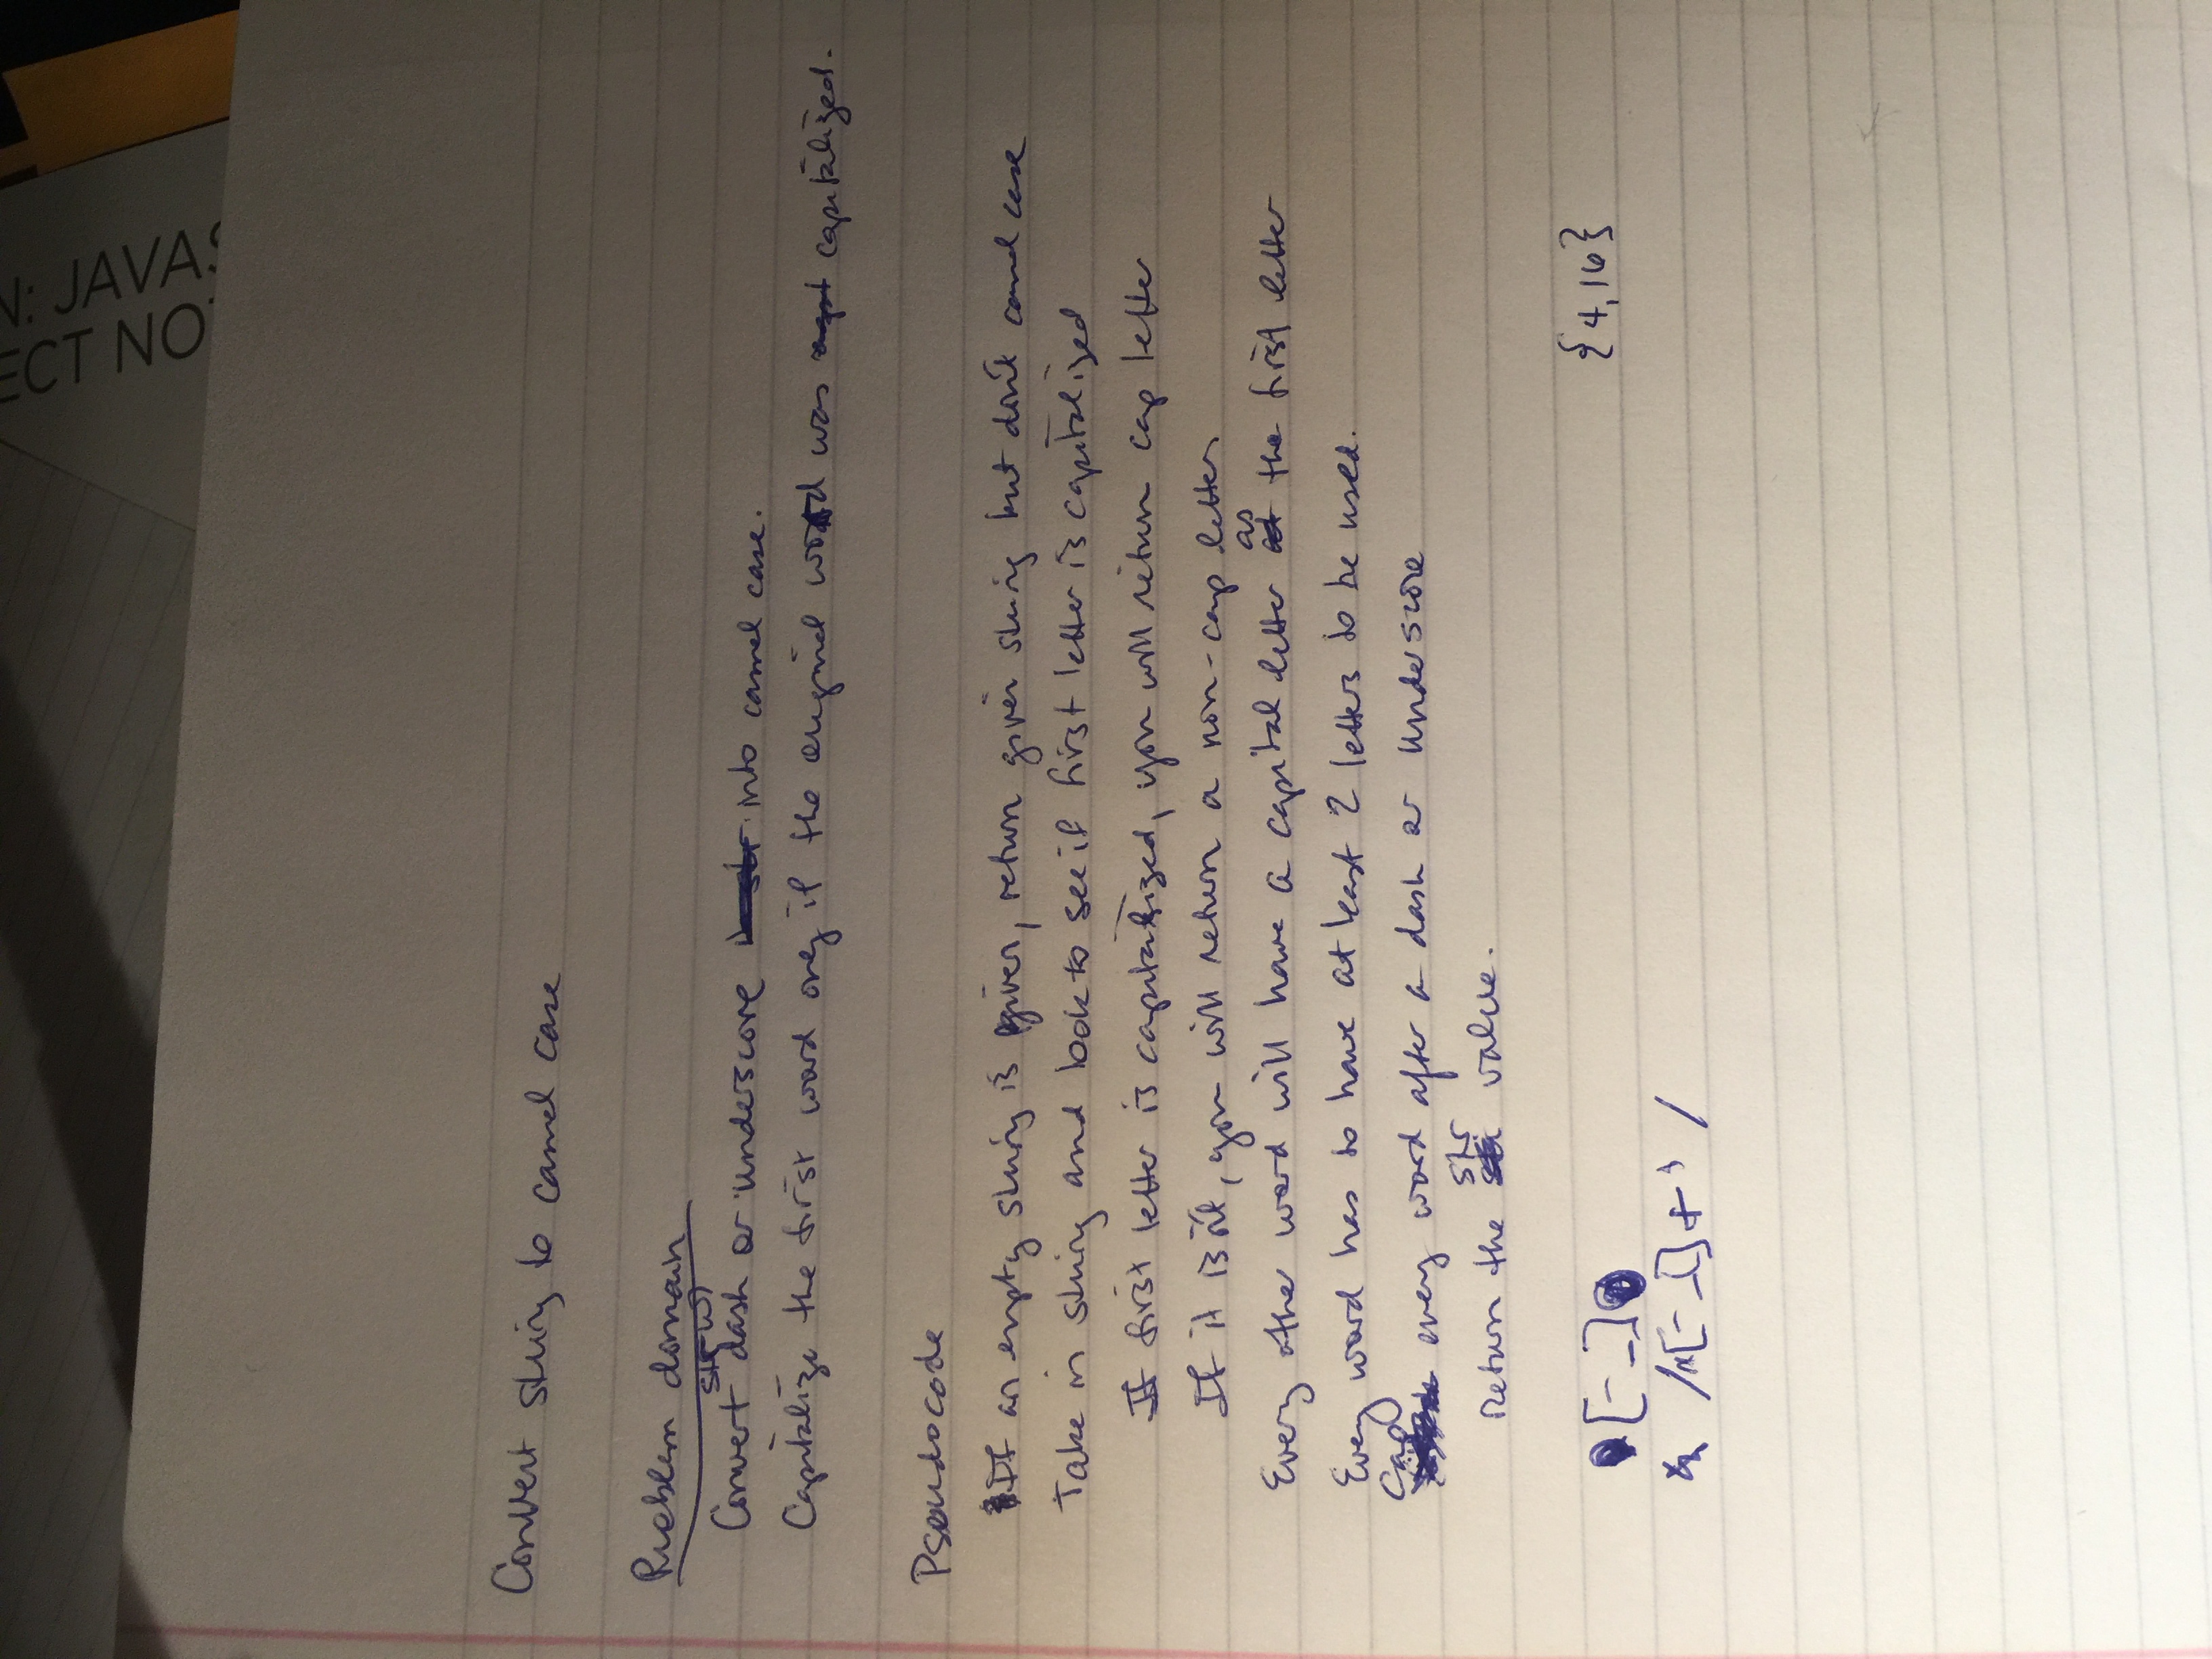 N: JAVAS
ECT NO.:
Convert string to camel case
Problem domain
Convert str w/ dash or underscore into camel case.
Capitalize the first word only if the original word was capitalized.
Pseudocode
If an empty string is given, return given string but don't camel case
Take in string and look to see if first letter is capitalized
If first letter is capitalized, you will return cap letter
If it isn't, you will return a non-cap letter
Every other word will have a capital letter as the first letter
Every word has to have at least 2 letters to be used.
Cap every word after a dash or underscore
return the str value.
[-_]
{4,16}
[-_]+ /